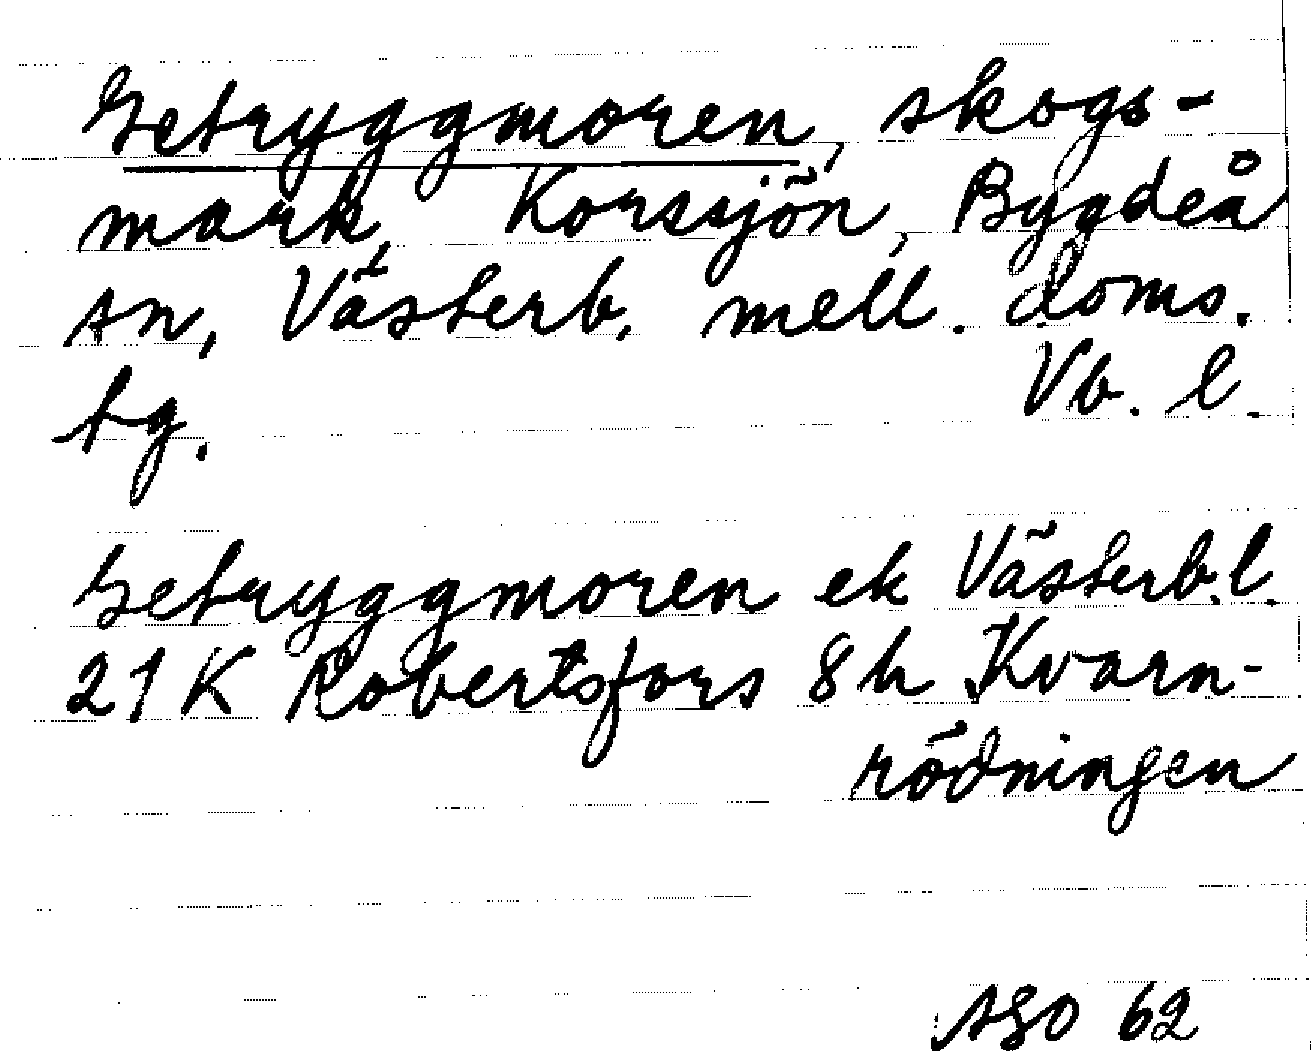 Getryggmoren, skogs-
mark, Korssjön, Bygdeå
sn, Västerb. mell. doms.
tg. Vb. l.
Getryggmoren ek Västerb. l.
21K Robertsfors 8h Kvarn-
rödningen
SGO 62